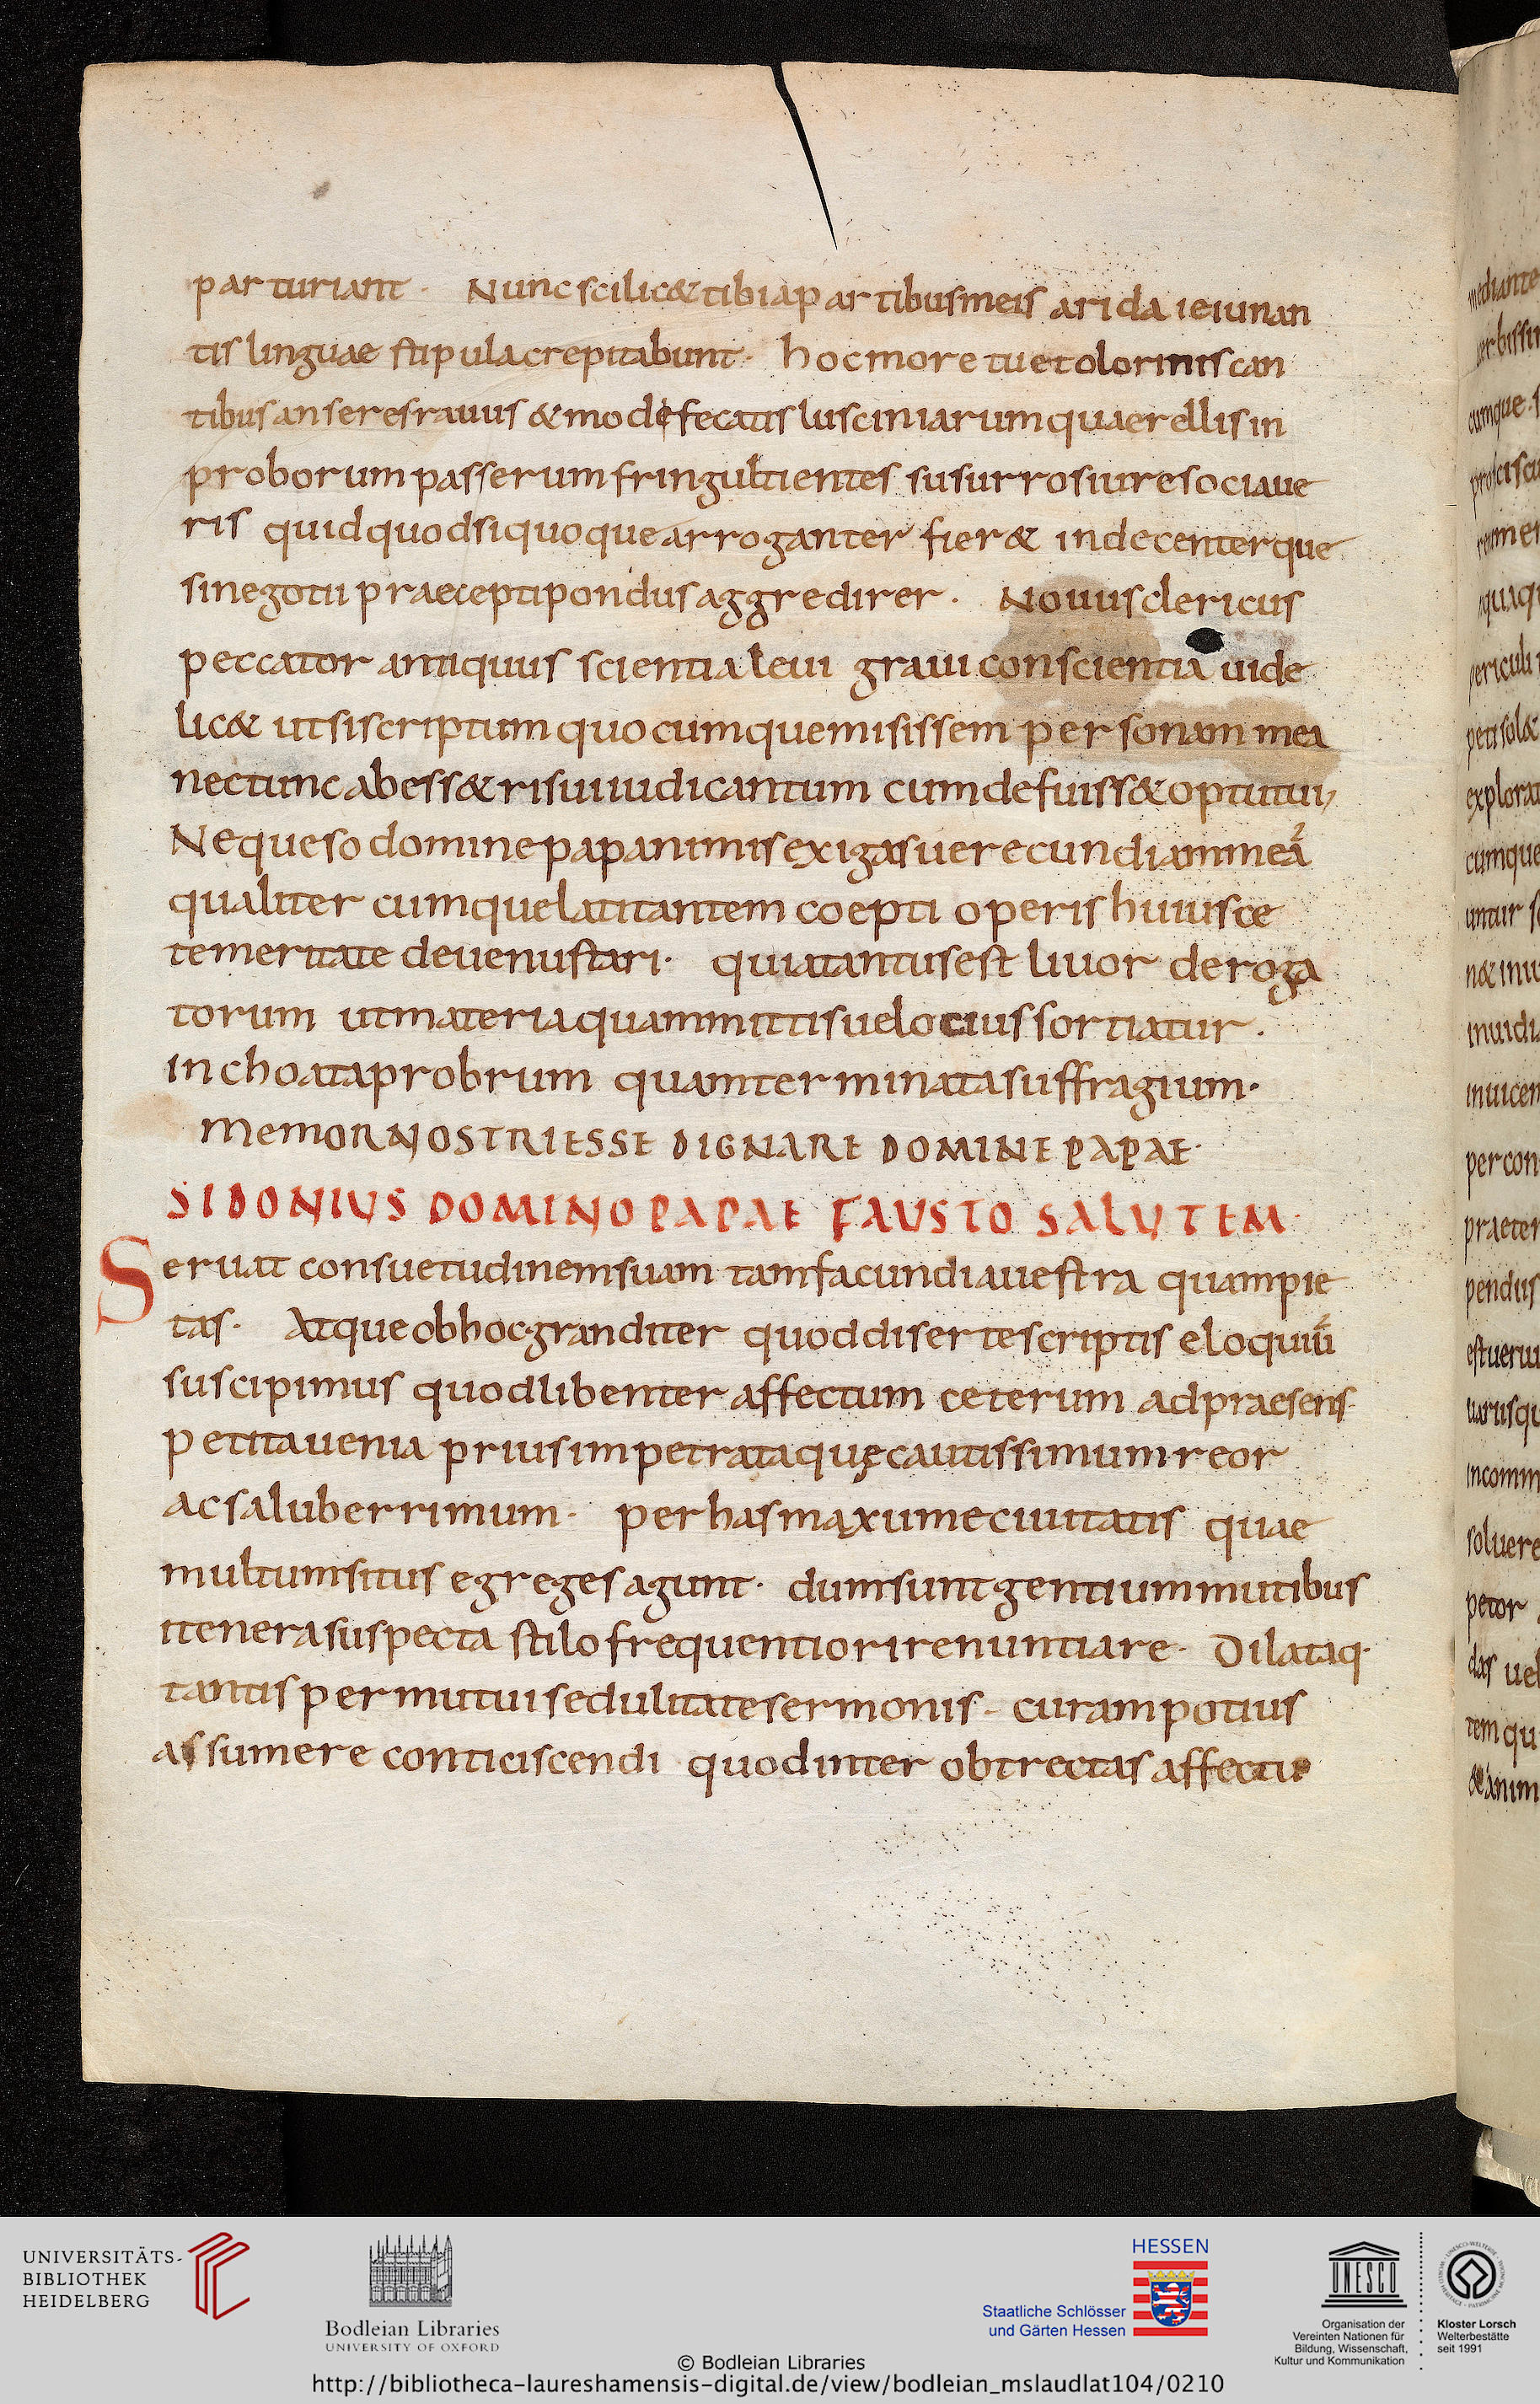 parturiant· Nunc scilic& tibi apartibus meis arida ieiunan
tis linguae stipula crepitabunt· hoc more tu et olorinis can
tibus anseres rauus & modefecatis lusciniarum quaerellis in
proborum passerum fringultientes susurros iure sociaue
ris quid quod si quoque arroganter fier& indecenterque
si negotii praecepti pondus aggredirer· Nouus clericus
peccator antiquus scientia leui graui conscientia uide
lic& ut si scriptum quocumque misissem personam mea
nec tunc abess& risui iudicantum cum defuiss& optutui,
Ne queso domine papa nimis exigas uerecundiam meā
qualiter cumque latitantem coepti operis huiusce
temeritate deuenustari· quia tantus est liuor deroga
torum ut materia quam mittis uelocius sortiatur·
inchoata probrum quam terminata suffragium·
MEMOR NOSTRI ESSE DIGNARE DOMINE PAPAE·
SIDONIUS DOMINO PAPAE FAUSTO SALUTEM·
Seruat consuetudinem suam tam facundia uestra quam pie
tas· Atque ob hoc granditer quod diserte scriptis eloquiū
suscipimus quod libenter affectum ceterum ad praesens·
petita uenia prius impetrataquę cautissimum reor
ac saluberrimum· per has maxume ciuitatis quae
multum situs egreges agunt· dum sunt gentium mutibus
itenera suspecta stilo frequentiori renuntiare· Dilataq·
tantisper mutui sedulitate sermonis· curam potius
assumere conticiscendi quod inter obtrectas affectus
UNIVERSITÄTS-
BIBLIOTHEK
HEIDELBERG
Bodleian Libraries
UNIVERSITY OF OXFORD
HESSEN
Staatliche Schlösser
und Gärten Hessen
UNESCO
Organisation der
Vereinten Nationen für
Bildung, Wissenschaft,
Kultur und Kommunikation
Kloster Lorsch
Welterbestätte
seit 1991
© Bodleian Libraries
http://bibliotheca-laureshamensis-digital.de/view/bodleian_mslaudlat104/0210